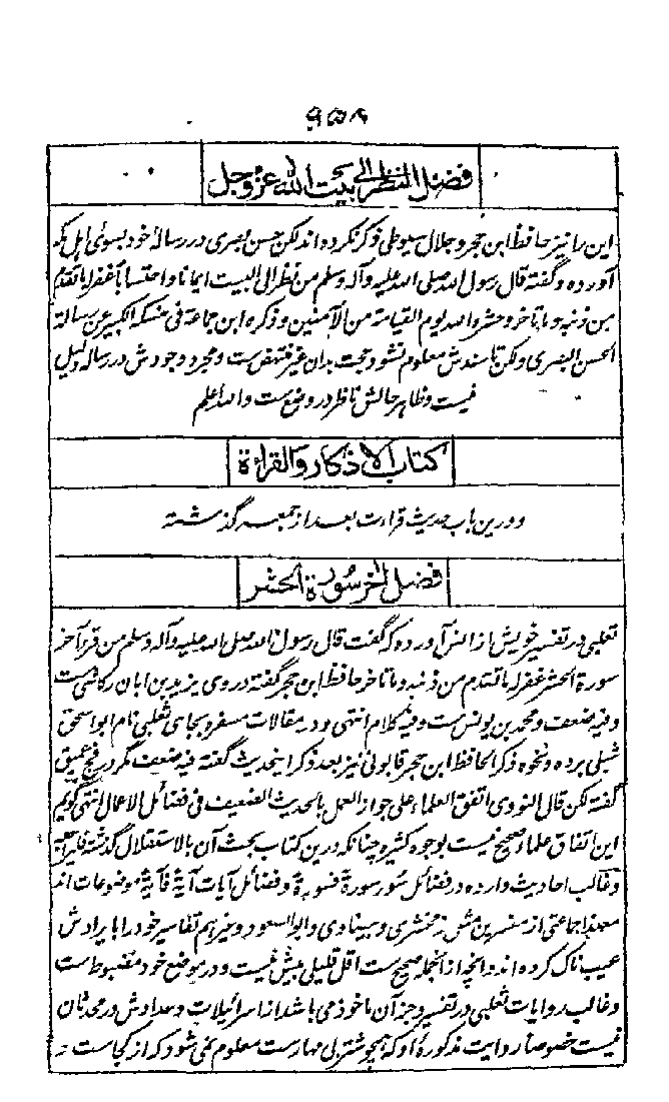 فضل النظر الی بیت اللہ عز و جل
این را نیز حافظ ابن حجر و جلال سیوطی ذکر نکرده اند لکن حسن بصری در رسالهٔ خود بسوی اہل مکہ
آورده و گفته قال رسول اللہ صلی اللہ علیہ وآلہ وسلم من نظر الی البیت ایمانا و احتسابا غفر له ما تقدم
من ذنبه و ما تأخر و حشره اللہ یوم القیامة من الآمنین و ذکره ابن جماعة فی منسکه الکبیر عن رسالة
الحسن البصری ولکن تا سندش معلوم نشود حجت بدان غیر منتہض ست و مجرد وجودش در رساله دلیل
نیست و ظاہر حالش ناظر در وضع ست واللہ اعلم
کتاب الاذکار والقراءة
و درین باب حدیث قراءت بعد از جمعه گذشته
فضل آخر سورة الحشر
ثعلبی در تفسیر خویش از انس آورده که گفت قال رسول اللہ صلی اللہ علیہ وآلہ وسلم من قرأ آخر
سورة الحشر غفر له ما تقدم من ذنبه و ما تأخر حافظ ابن حجر گفته در وی یزید بن ابان رقاشی ست
و فیه ضعف و محمد بن یونس ست و فیه کلام انتہی و در مقالات مسفره بجای ثعلبی نام ابو اسحق
شبلی برده و نحوه ذکر الحافظ ابن حجر قابونی نیز بعد ذکر اینحدیث گفته فیه ضعیف مگر در فج عمیق
گفته لکن قال النووی اتفق العلماء علی جواز العمل بالحدیث الضعیف فی فضائل الاعمال انتہی گویم
این اتفاق علماء صحیح نیست بوجوه کثیره چنانکه درین کتاب بحث آن بالاستقلال گذشته
و غالب احادیث وارده در فضائل سُوَر سورة فسورة و فضائل آیات آیة فآیة موضوعات اند
معہذا جماعتی از مفسرین مثل زمخشری و بیضاوی و ابو السعود و غیرہم تفاسیر خود را بایرادش
عیب ناک کرده اند و آنچه از آنجمله صحیح ست اقل قلیلی بیش نیست و در موضع خود مضبوط ست
و غالب روایات ثعلبی در تفسیر و جز آن ماخوذ می باشد از اسرائیلیات و عدادش در محدثان
نیست خصوصا روایت مذکورهٔ او که ہیچو شتر بی مہارست معلوم نمی شود که از کجاست